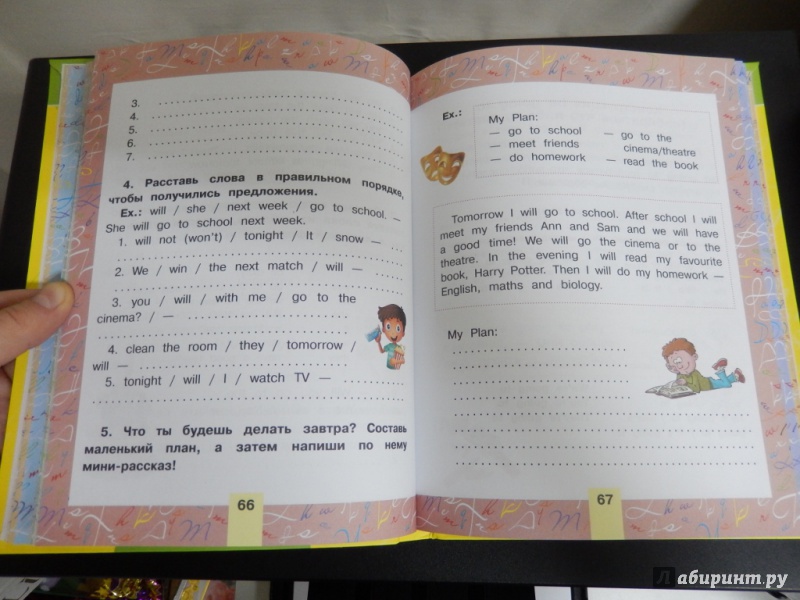 3.
4.
5.
6.
7.
4. Расставь слова в правильном порядке,
чтобы получились предложения.
Ex.: will / she / next week / go to school. —
She will go to school next week.
1. will not (won't) / tonight / It / snow —
2. We / win / the next match / will —
3. you / will / with me / go to the
cinema? / —
4. clean the room / they / tomorrow /
will —
5. tonight / will / I / watch TV —
5. Что ты будешь делать завтра? Составь
маленький план, а затем напиши по нему
мини-рассказ!
66
Ex.:
My Plan:
— go to school
— meet friends
— do homework
— go to the
cinema/theatre
— read the book
Tomorrow I will go to school. After school I will
meet my friends Ann and Sam and we will have
a good time! We will go the cinema or to the
theatre. In the evening I will read my favourite
book, Harry Potter. Then I will do my homework —
English, maths and biology.
My Plan:
67
Лабиринт.ру